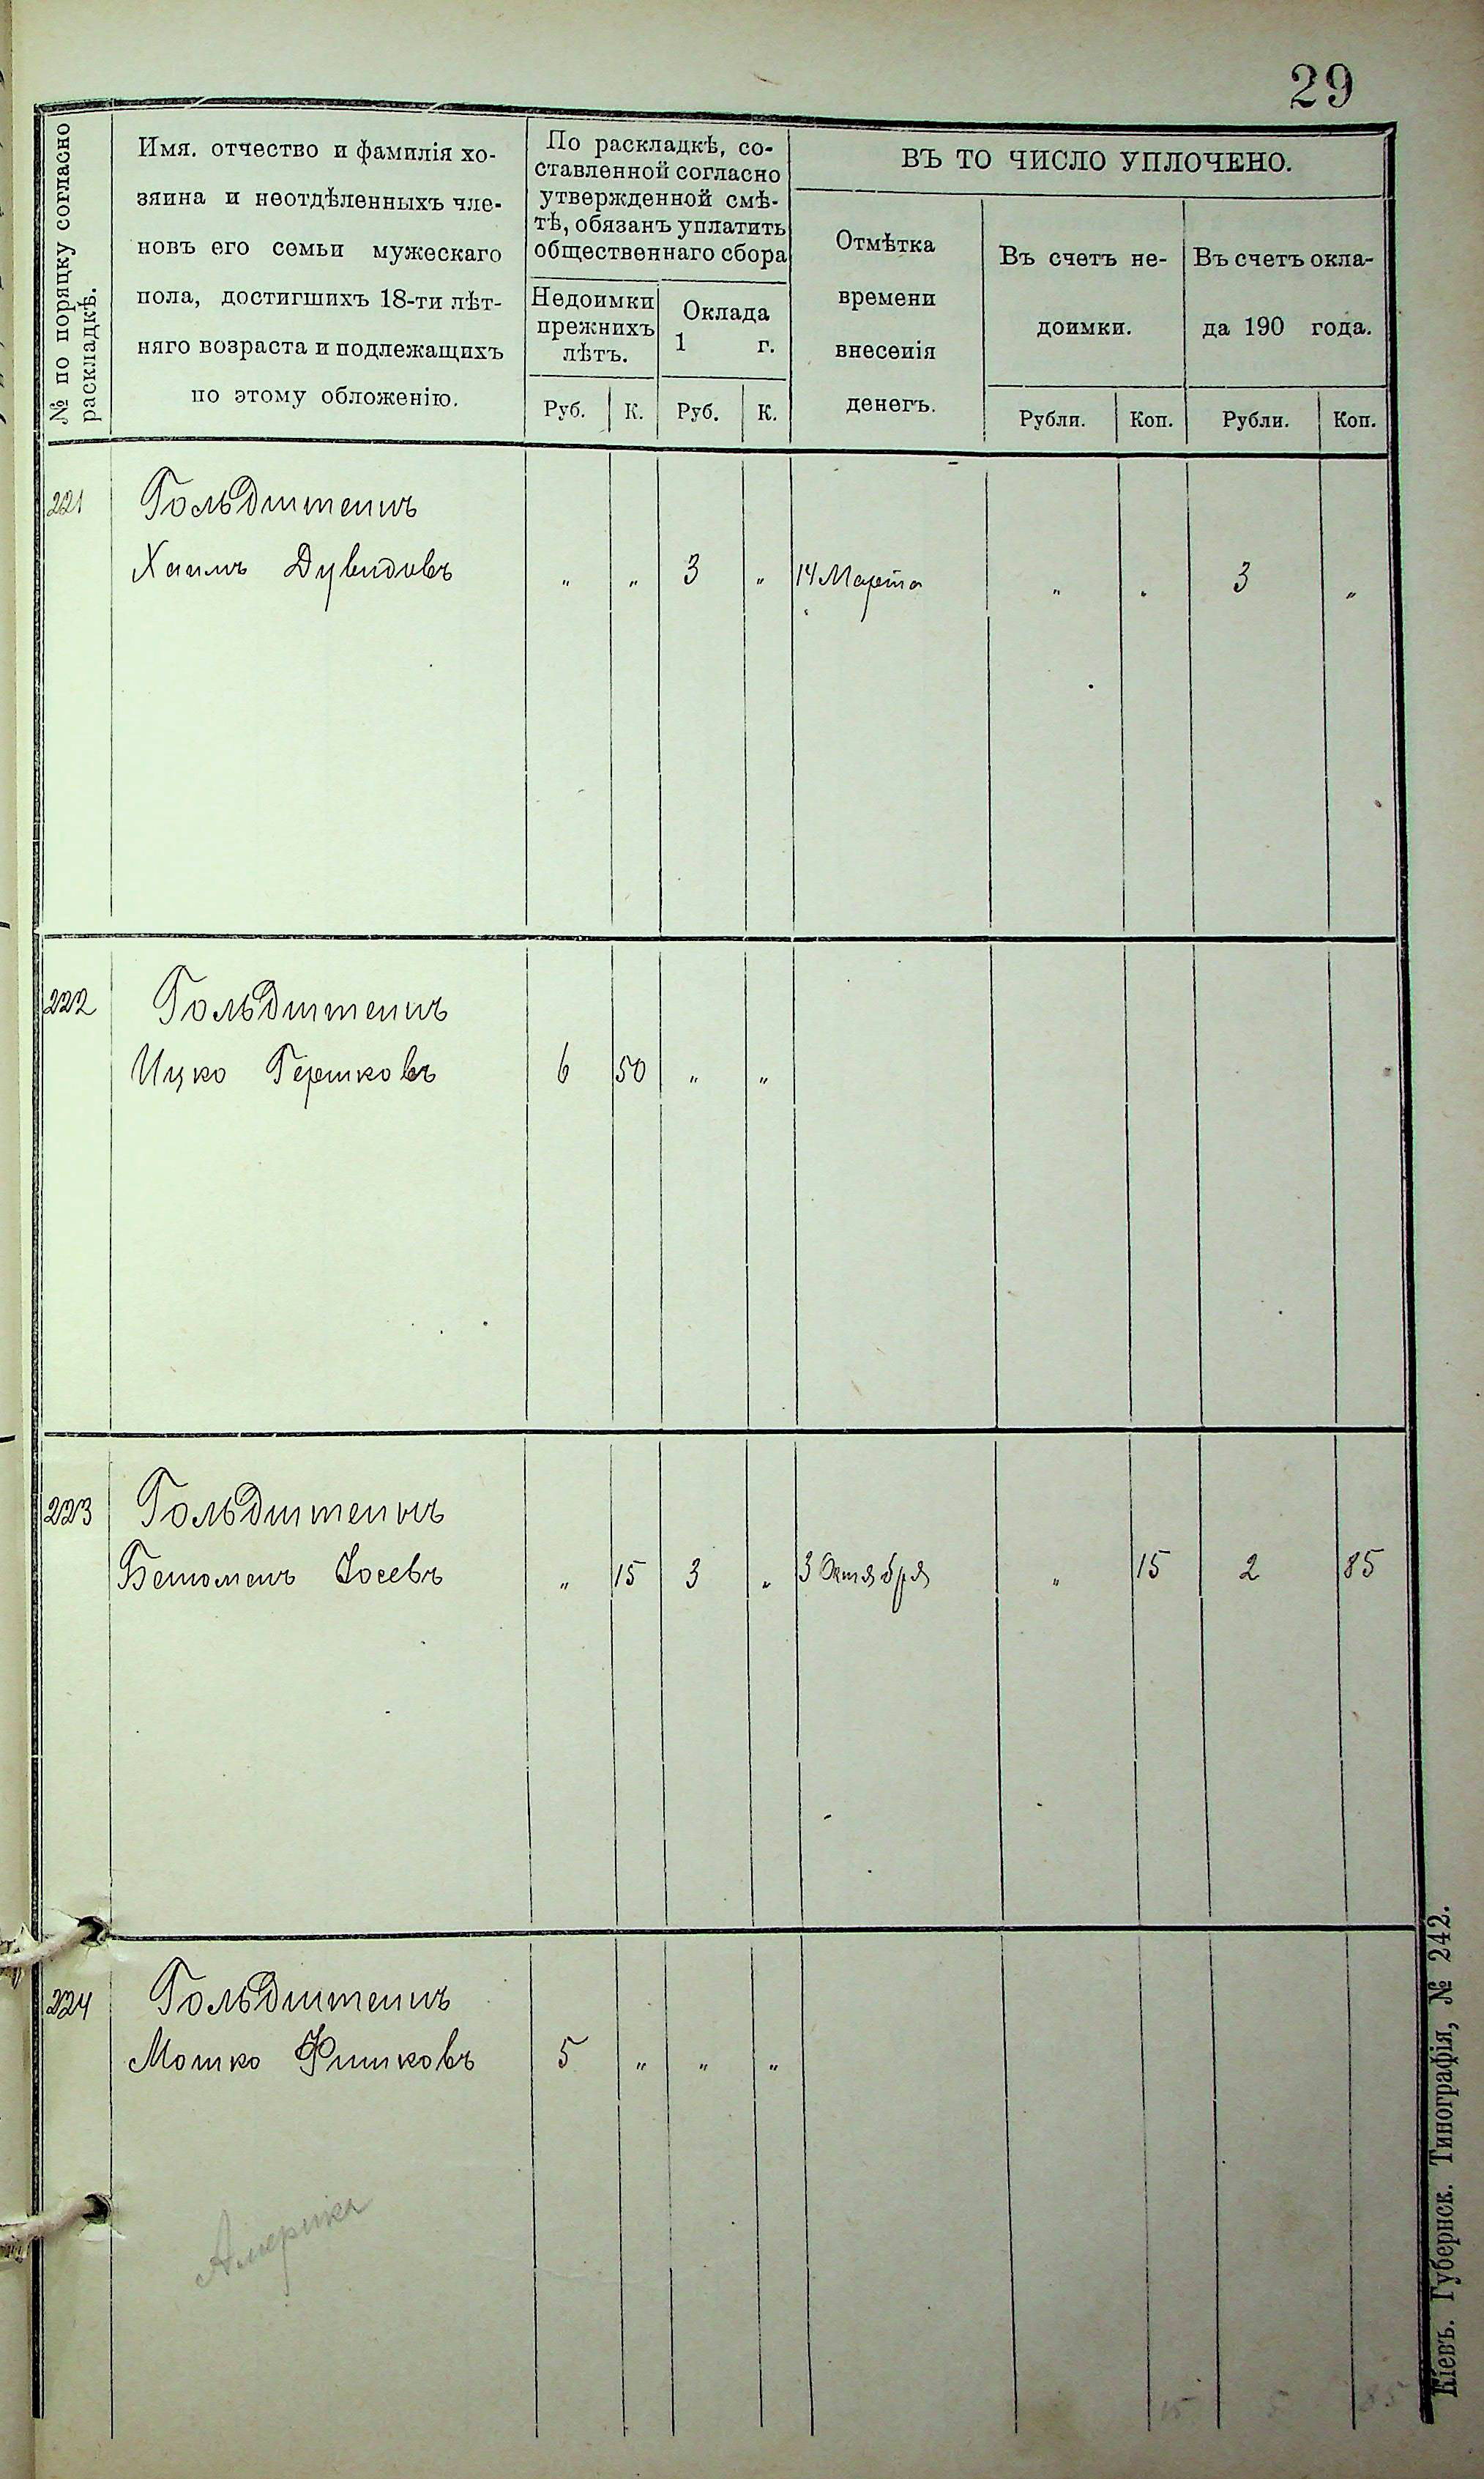 29
№ по порядку согласно
раскладкѣ.
Имя. отчество и фамилія хо-
зяина и неотдѣленныхъ чле-
новъ его семьи мужескаго
пола, достигшихъ 18-ти лѣт-
няго возраста и подлежащихъ
по этому обложенію.
По раскладкѣ, со-
ставленной согласно
утвержденной смѣ-
тѣ, обязанъ уплатить
общественнаго сбора
Недоимки
прежнихъ
лѣтъ.
Оклада
1 г.
Руб. К. Руб. К.
ВЪ ТО ЧИСЛО УПЛОЧЕНО.
Отмѣтка
времени
внесенія
денегъ.
Въ счетъ не-
доимки.
Въ счетъ окла-
да 190 года.
Рубли. Коп. Рубли. Коп.
221 Гольдштеинъ
Хаимъ Дувидовъ " " 3 " 14 Марта " " 3 "
222 Гольдштеинъ
Ицко Гершковъ 6 50 " "
223 Гольдштеинъ
Іосевъ " 15 3 " 3 Октября " 15 2 85
224 Гольдштеинъ
Мошко Фишковъ 5 " " "
Америка
15 5 85
Кіевъ. Губернск. Типографія, № 242.